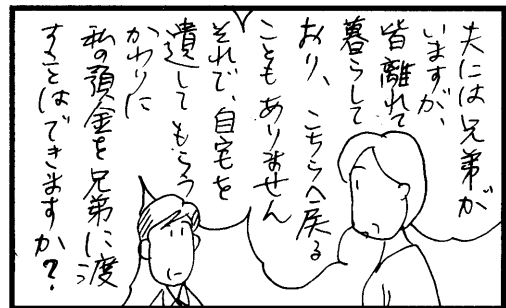 夫には兄弟が
いますが、
皆離れて
暮らして
おり、こちらへ戻る
こともありません
それで、自宅を
遺してもらう
かわりに
私の預金を兄弟に渡
すことはできますか?